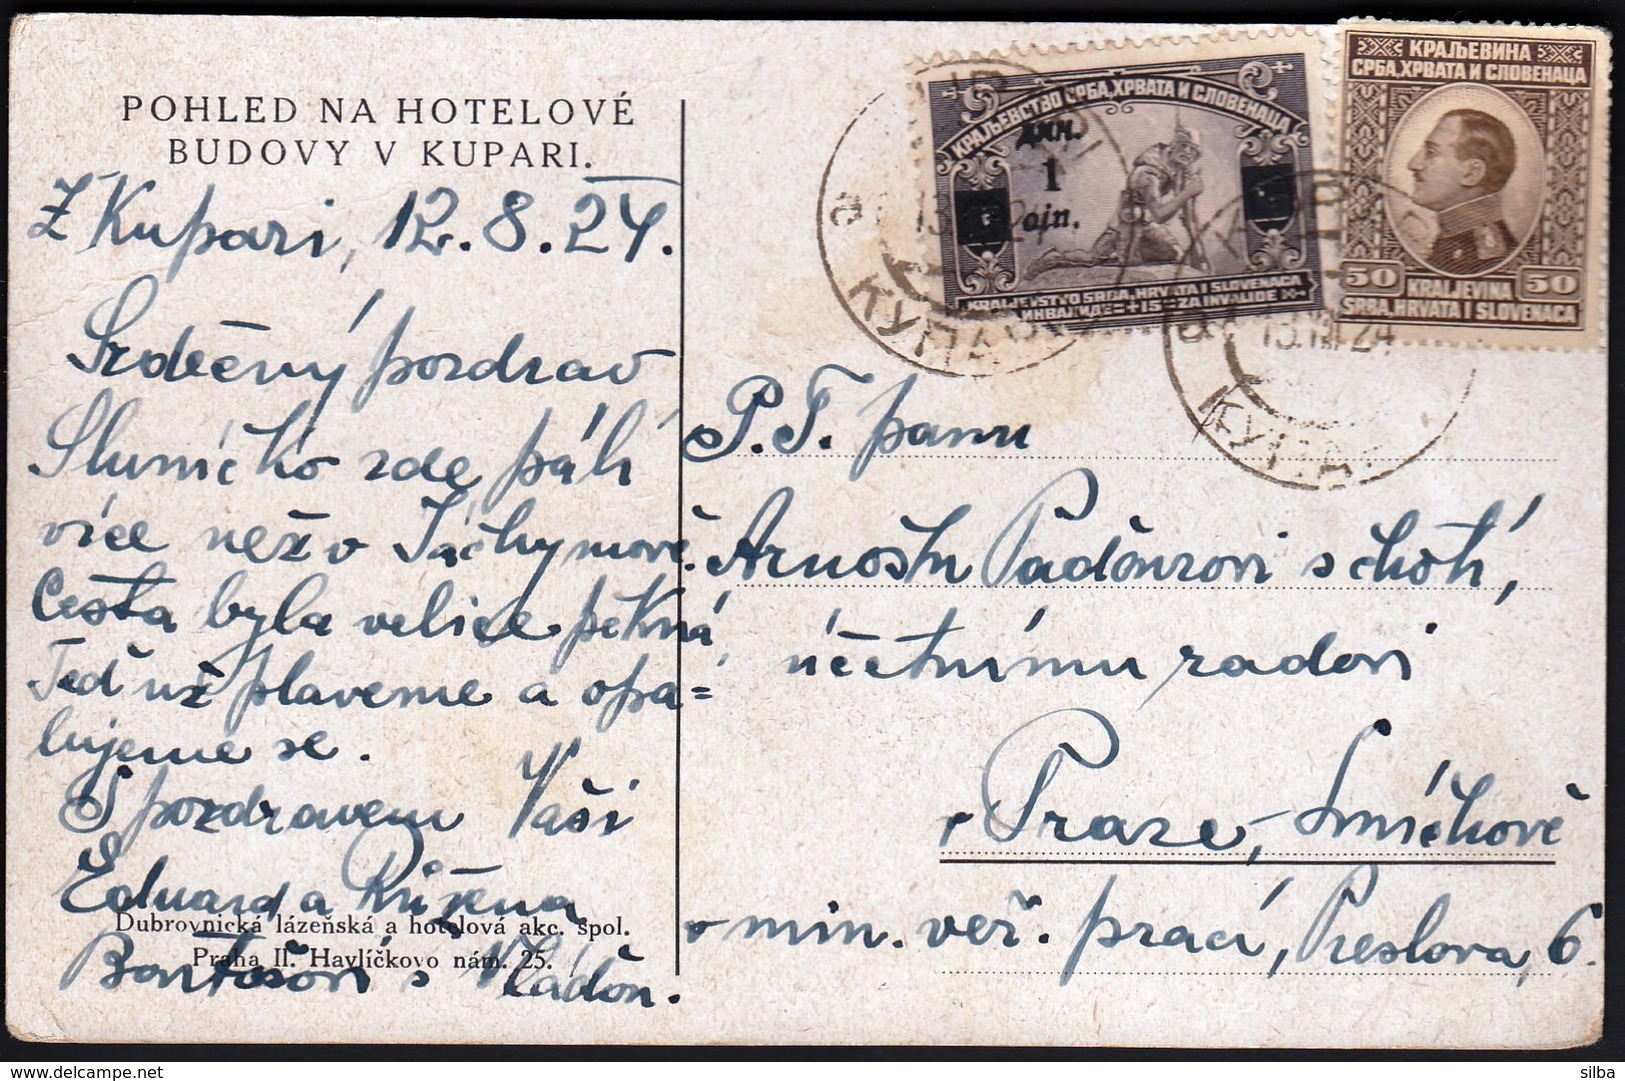 POHLED NA HOTELOVÉ
BUDOVY V KUPARI.
Z Kupari, 12. 8. 24.
Srdečný pozdrav
Sluníčko zde pálí
více než v Jáchymově.
Cesta byla velice pěkná,
Teď už plaveme a opa=
lujeme se.
S pozdravem Vaši
Eduard a Růžena
s Vláďou.
Dubrovnická lázeňská a hotelová akc. spol.
Praha II. Havlíčkovo nám. 25.
КРАЉЕВСТВО СРБА, ХРВАТА И СЛОВЕНАЦА
дин.
1
din.
KRALJEVSTVO SRBA, HRVATA I SLOVENACA
ИНВАЛИДЕ +15 ZA INVALIDE
КРАЉЕВИНА
СРБА, ХРВАТА И СЛОВЕНАЦА
50 50
KRALJEVINA
SRBA, HRVATA I SLOVENACA
13.VIII 24
P. T. panu
Arnoštu s chotí,
účetnímu radovi
v Praze, Smíchově
v min. veř. prací, Preslova, 6.
silba